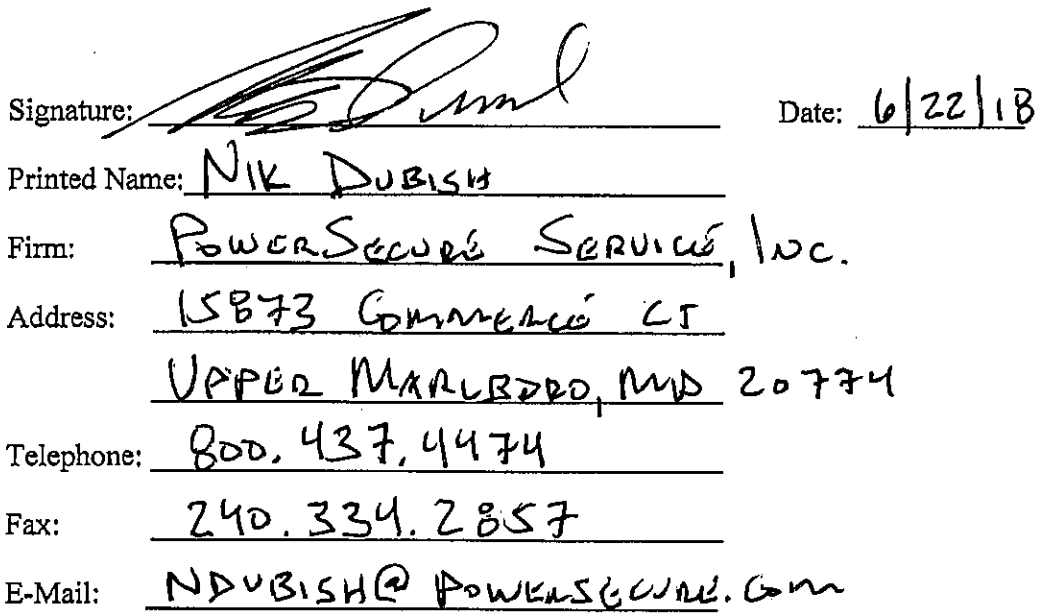 Signature: Date: 6/22/18
Printed Name: NIK DUBISH
Firm: POWERSECURE SERVICE, INC.
Address: 15873 COMMERCE CT
UPPER MARLBORO, MD 20774
Telephone: 800.437.4474
Fax: 240.334.2857
E-Mail: NDUBISH@POWERSECURE.COM